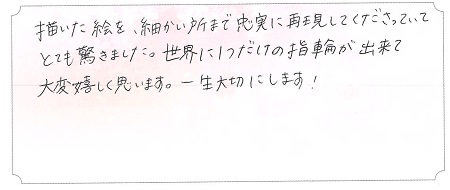 描いた絵を、細かい所まで忠実に再現してくださっていて
とても驚きました。世界に1つだけの指輪が出来て
大変嬉しく思います。一生大切にします!